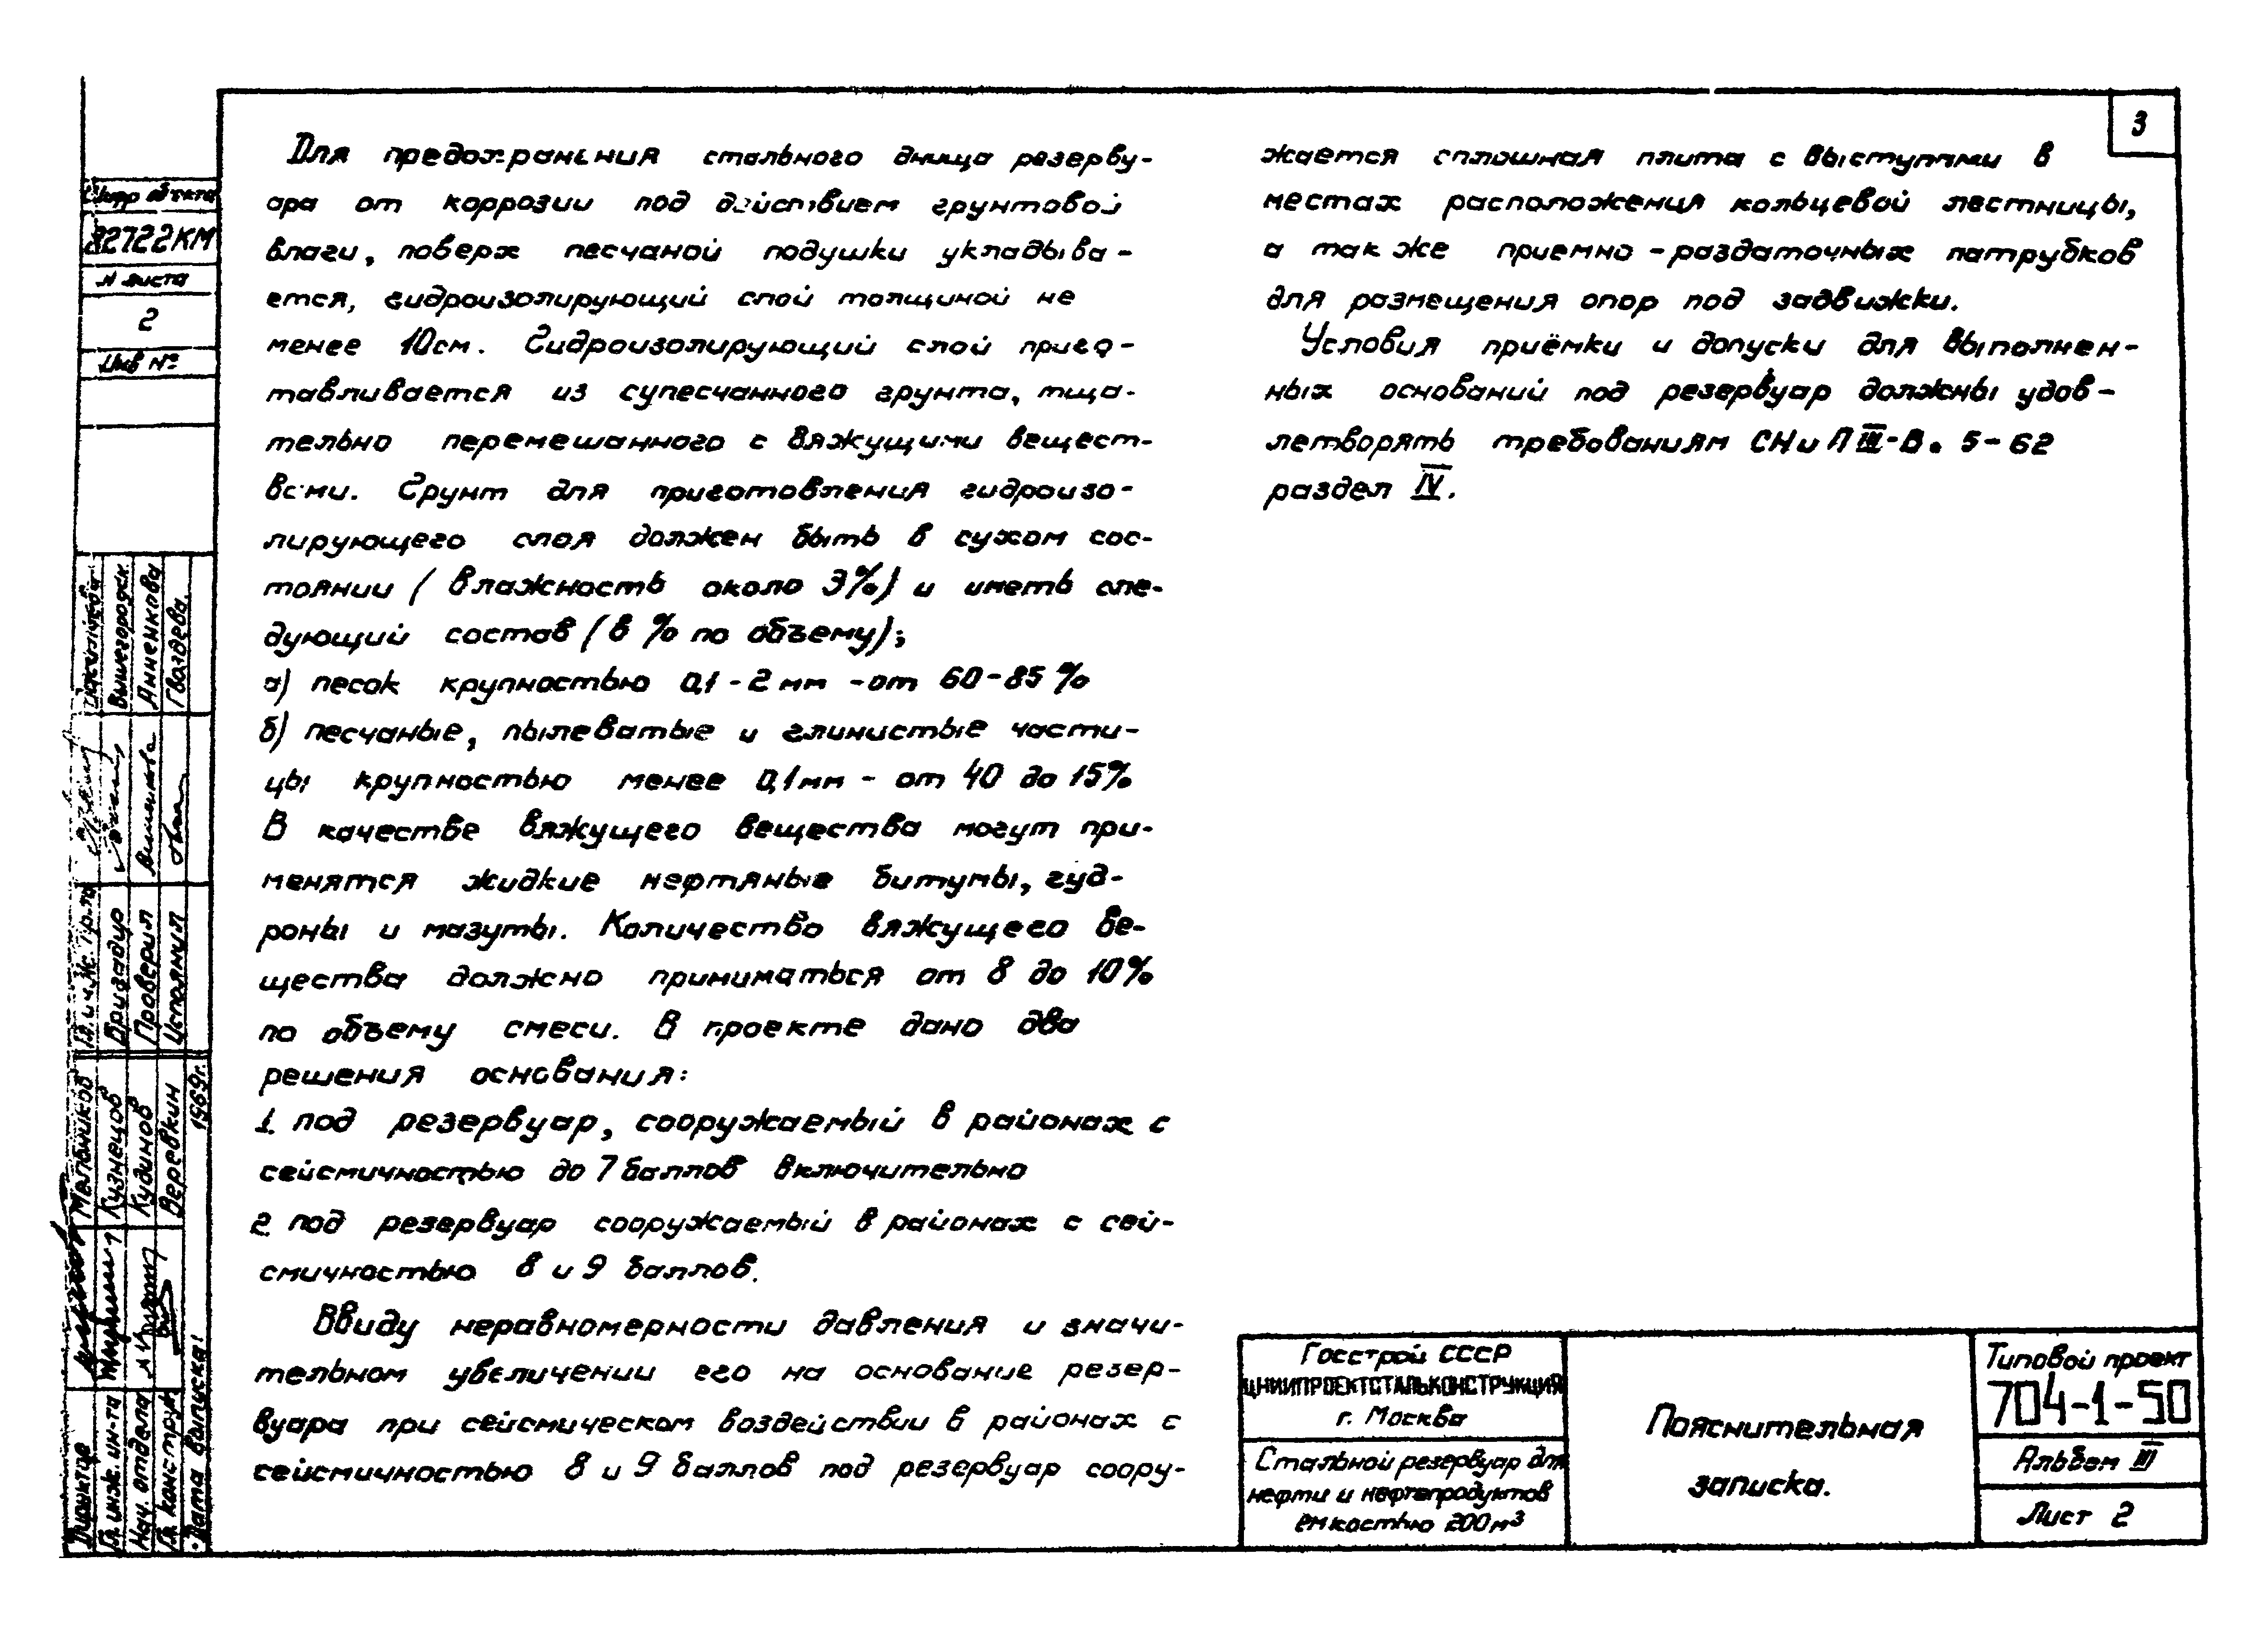 3
Для предохранения стального днища резерву-
ара от коррозии под действием грунтовой
влаги, поверх песчаной подушки укладыва-
ется, гидроизолирующий слой толщиной не
менее 10см. Гидроизолирующий слой приго-
тавливается из супесчанного грунта, тща-
тельно перемешанного с вяжущими вещест-
вами. Грунт для приготовления гидроизо-
лирующего слоя должен быть в сухом сос-
тоянии (влажность около 3%) и иметь сле-
дующий состав (в % по объему);
а) песок крупностью 0,1-2 мм -от 60-85%
б) песчаные, пылеватые и глинистые части-
цы крупностью менее 0,1мм - от 40 до 15%
В качестве вяжущего вещества могут при-
менятся жидкие нефтяные битумы, гуд-
роны и мазуты. Количество вяжущего ве-
щества должно приниматься от 8 до 10%
по объему смеси. В проекте дано два
решения основания:
1. под резервуар, сооружаемый в районах с
сейсмичностью до 7 баллов включительно
2. под резервуар сооружаемый в районах с сей-
смичностью 8 и 9 баллов.
Ввиду неравномерности давления и значи-
тельном увеличении его на основание резер-
вуара при сейсмическом воздействии в районах с
сейсмичностью 8 и 9 баллов под резервуар соору-
жается сплошная плита с выступами в
местах расположения кольцевой лестницы,
а так же приемно-раздаточных патрубков
для размещения опор под задвижки.
Условия приёмки и допуски для выполнен-
ных оснований под резервуар должны удов-
летворять требованиям СНиП III-В. 5-62
раздел IV.
Шифр объекта
32722КМ
N листа
2
Инв №
Вышегородск.
Анненкова
Гваздева
Гл. инж. пр-та
Бригадир
Проверил
Исполнил
Мельников
Кузнецов
Кудинов
Веревкин
1969г.
Директор
Гл. инж. ин-та
Нач. отдела
Гл. констр.
Дата выпуска:
Госстрой СССР
ЦНИИПРОЕКТСТАЛЬКОНСТРУКЦИЯ
г. Москва
Стальной резервуар для
нефти и нефтепродуктов
емкостью 200м³
Пояснительная
записка.
Типовой проект
704-1-50
Альбом III
Лист 2